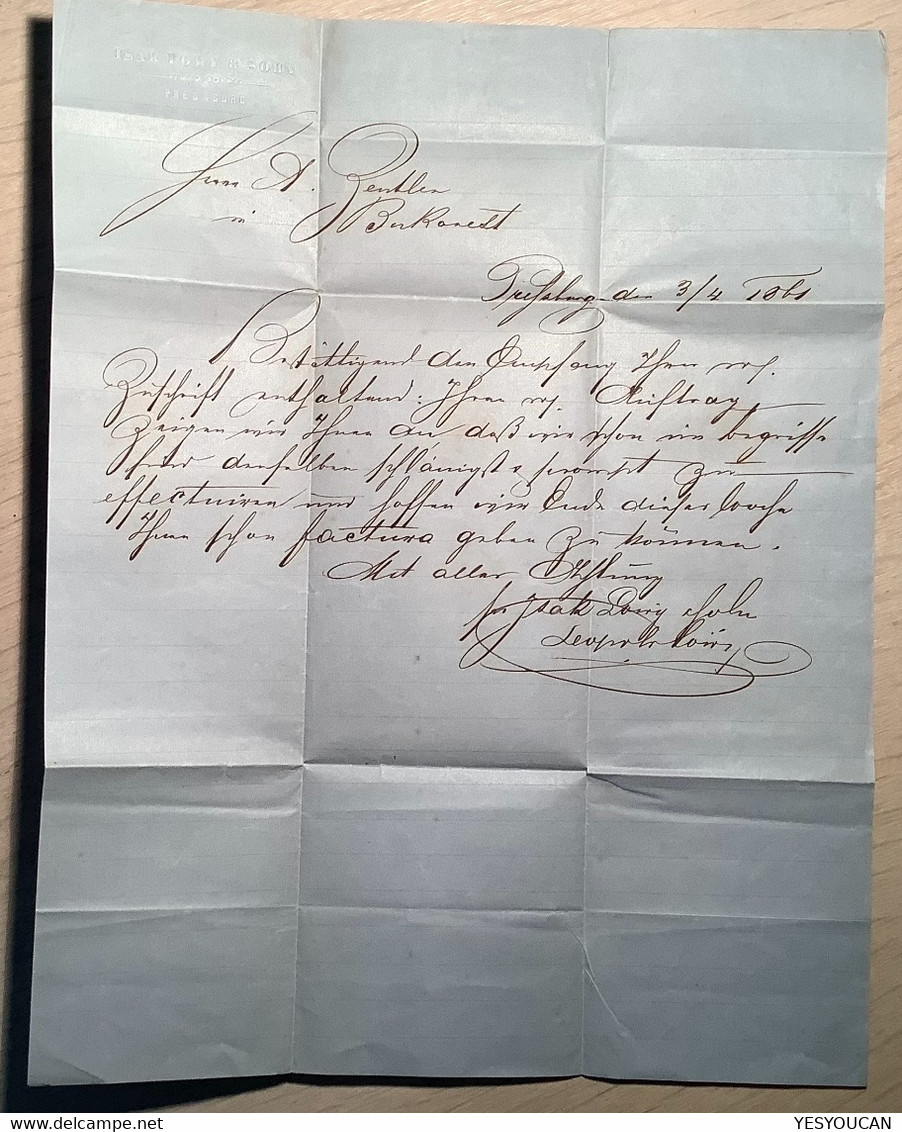 ISAK & SOHN
PRESSBURG
Herrn A. Zentler
in Bukarest
Preßburg den 3/4 1861
Bestättigend den Empfang Ihrer
Zuschrift enthaltend Ihren Auftrag,
zeigen wir Ihnen an daß wir schon im begriffe
sind denselben schläunigst & prompt zu
effectuiren und hoffen wir Ende dieser Woche
Ihnen schon factura geben zu können.
Mit aller Achtung
pr Isak Sohn
Leopold
YESYOUCAN